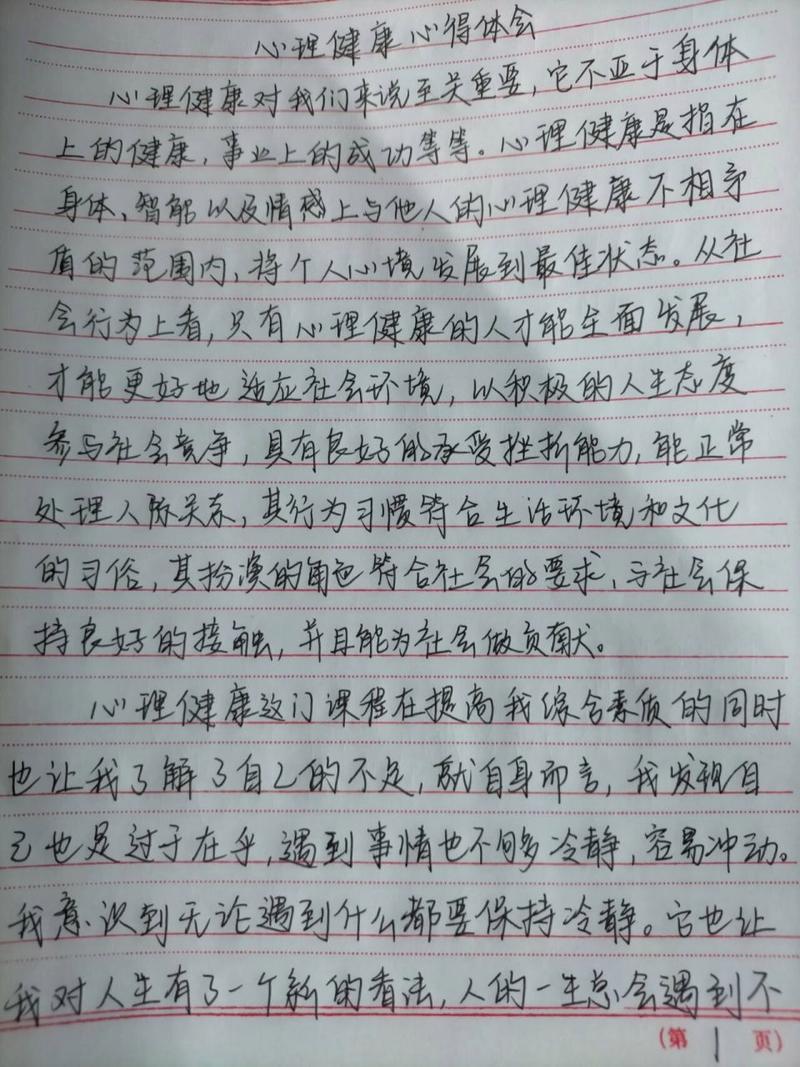 心理健康心得体会
心理健康对我们来说至关重要，它不亚于身体
上的健康，事业上的成功等等。心理健康是指在
身体、智能以及情感上与他人的心理健康不相矛
盾的范围内，将个人心境发展到最佳状态。从社
会行为上看，只有心理健康的人才能全面发展，
才能更好地适应社会环境，以积极的人生态度
参与社会竞争，具有良好的承受挫折能力，能正常
处理人际关系，其行为习惯符合生活环境和文化
的习俗，其扮演的角色符合社会的要求，与社会保
持良好的接触，并且能为社会做贡献。
心理健康这门课程在提高我综合素质的同时
也让我了解了自己的不足，就自身而言，我发现自
己也是过于在乎，遇到事情也不够冷静，容易冲动。
我意识到无论遇到什么都要保持冷静。它也让
我对人生有了一个新的看法，人的一生总会遇到不
(第 1 页)